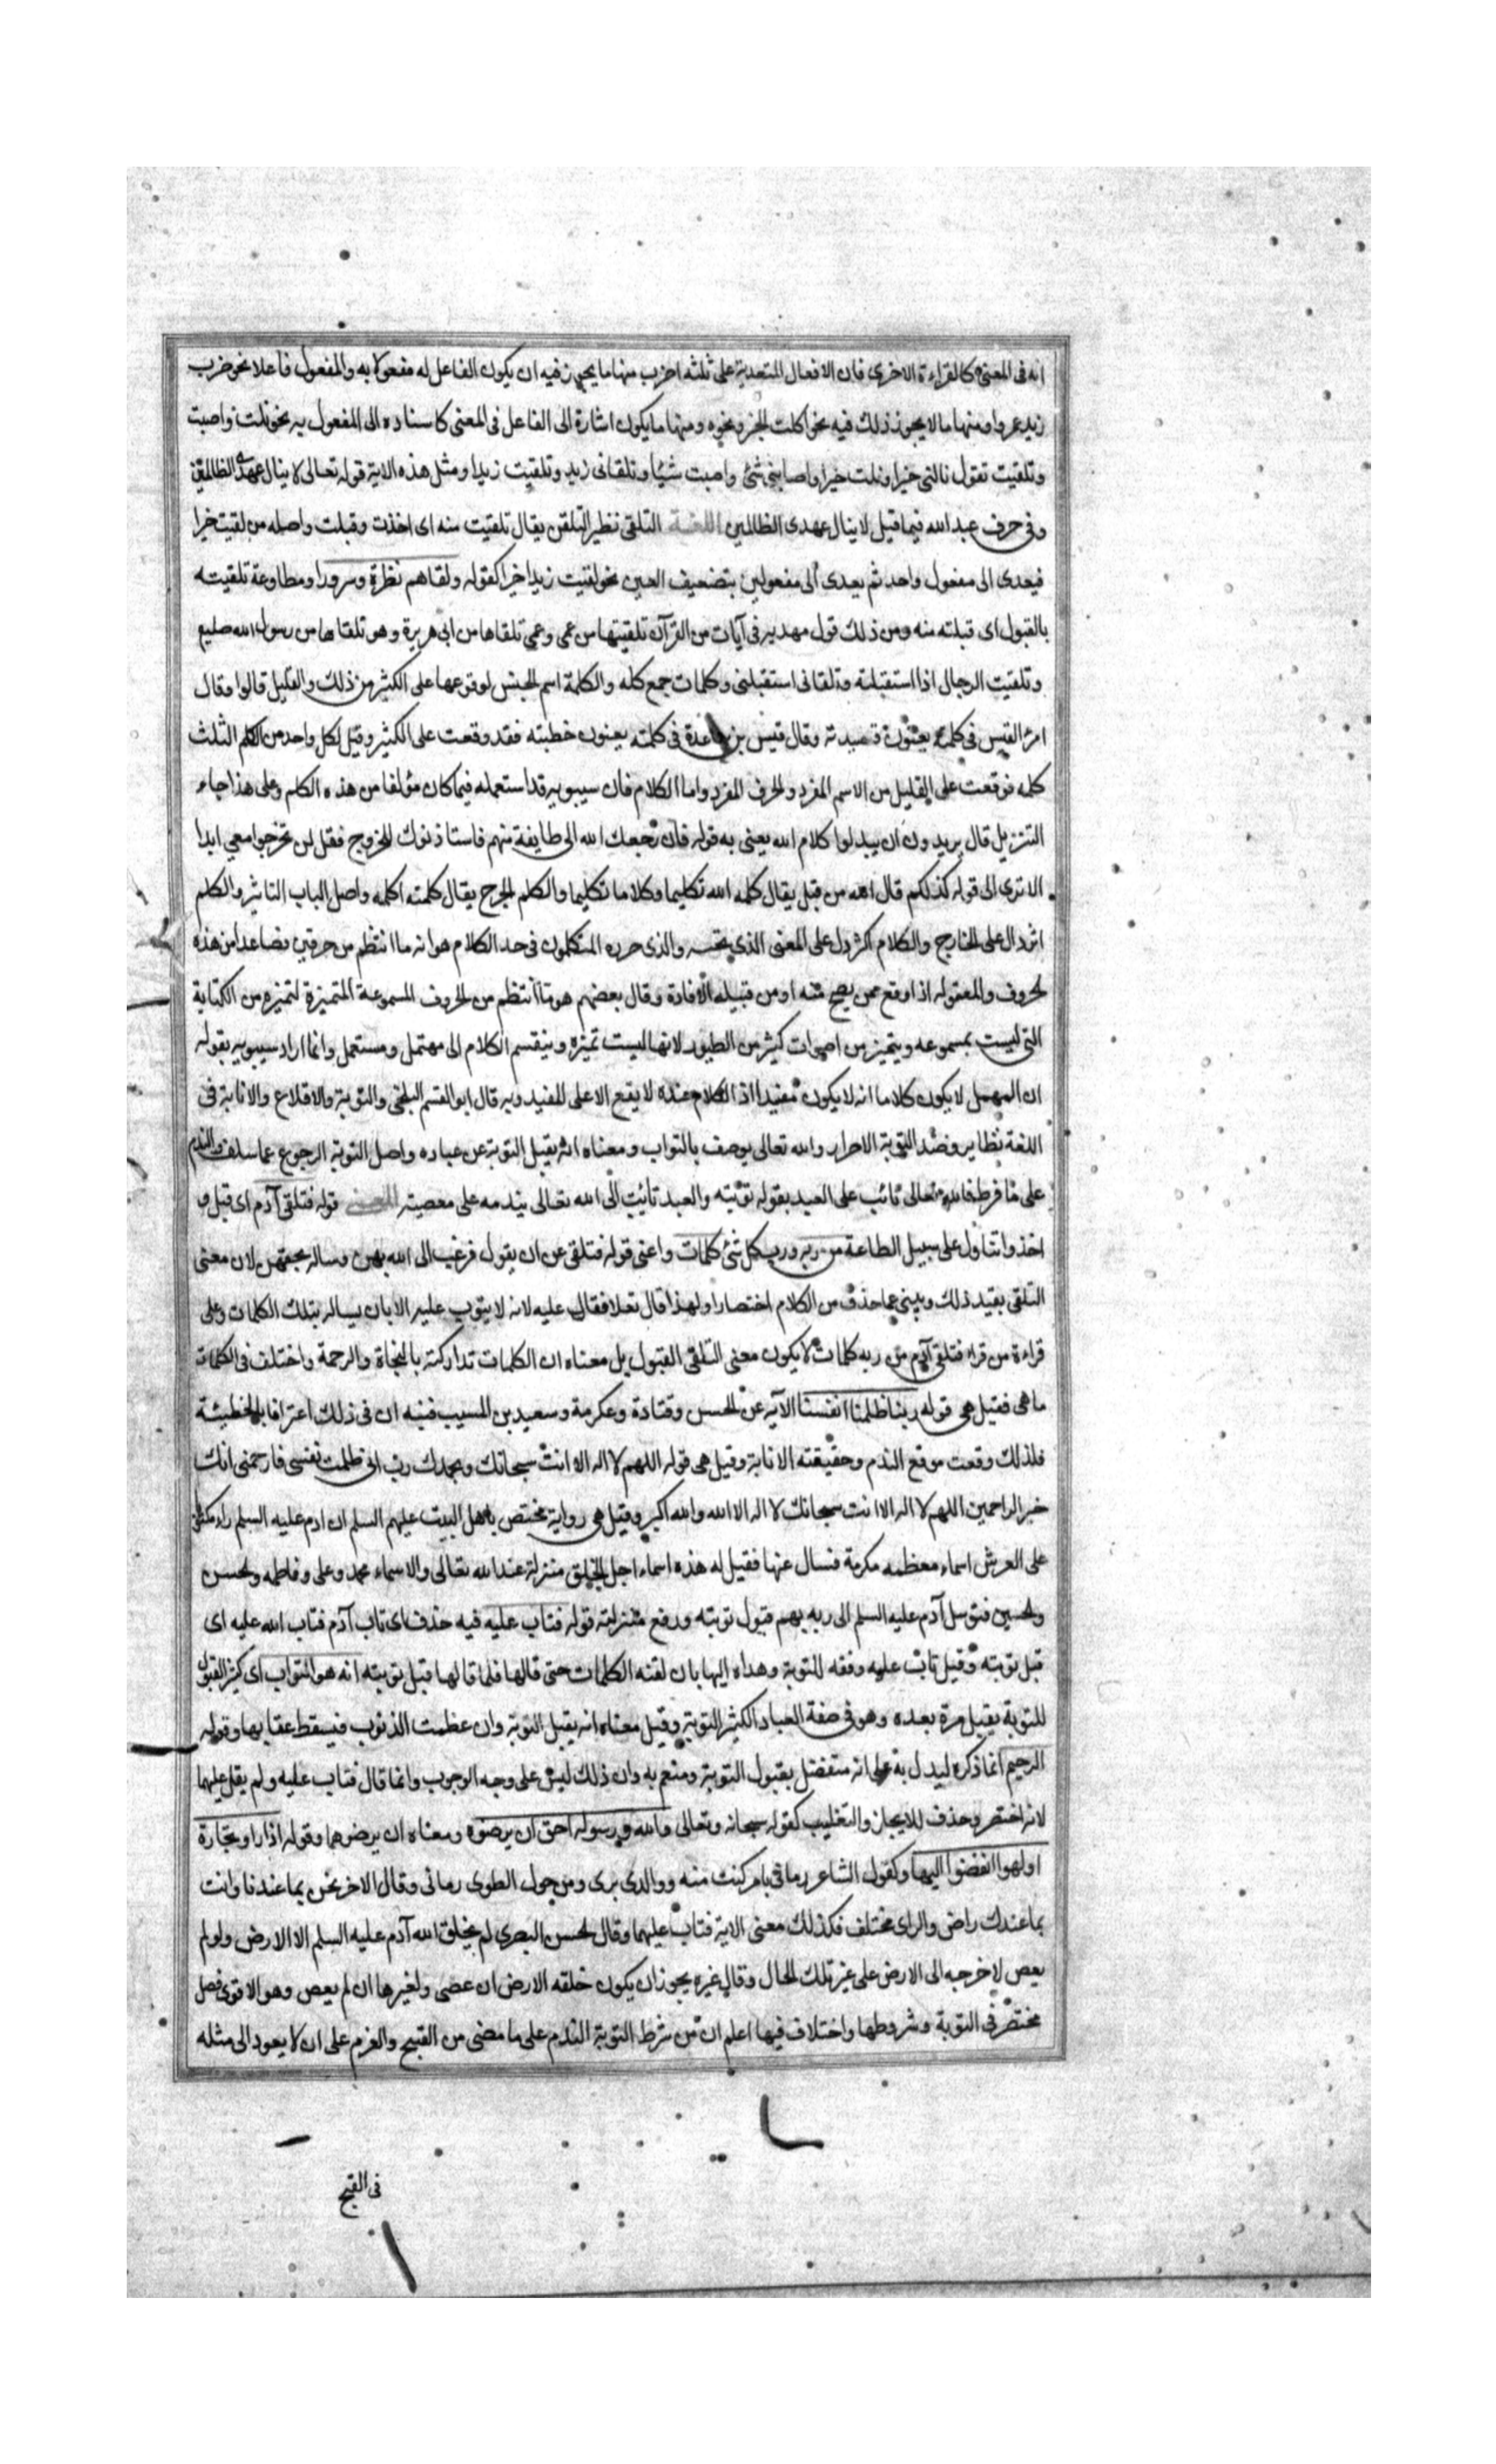 انه فى المعنى كالقراءة الاخرى فان الافعال المتعدية على ثلثه اضرب منها ما يجوز فيه ان يكون الفاعل له مفعولا به والمفعول فاعلا نحو ضرب
زيد عمروا ومنها ما لا يجوز ذلك فيه نحو اكلت الخبز ونحوه ومنها ما يكون اشارة الى الفاعل فى المعنى كاسناده الى المفعول به نحو نلت واصبت
وتلقيت تقول نالنى خيرا ونلت خيرا واصابنى شئ واصبت شيئا وتلقانى زيد وتلقيت زيدا ومثل هذه الاية قوله تعالى لا ينال عهدى الظالمين
وفى حرف عبد الله فيما قيل لا ينال عهدى الظالمين اللغة التلقى نظير التلقن يقال تلقيت منه اى اخذت وقبلت واصله من لقيت خيرا
فيعدى الى مفعول واحد ثم يعدى الى مفعولين بتضعيف العين نحو لقيت زيدا خيرا كقوله ولقاهم نظرة وسرورا ومطاوعة تلقيته
بالقبول اى قبلته منه ومن ذلك قول مهديه فى آيات من القرآن تلقيتها من عمى وعمى تلقاها من ابى هريرة وهو تلقاها من رسول الله صليع
وتلقيت الرجال اذا استقبلته وتلقانى استقبلنى وكلمات جمع كله والكلمة اسم الجنس لوقوعها على الكثير من ذلك والقليل قالوا وقال
امرؤ القيس فى كلمته يعنون قصيدته وقال قيس بن ساعدة فى كلمته يعنون خطبته فقد وقعت على الكثير وقيل لكل واحد من الكلم الثلث
كلمه فوقعت على القليل من الاسم المفرد والحرف المفرد واما الكلام فان سيبويه قد استعمله فيما كان مؤلفا من هذه الكلم وعلى هذا جاء
التنزيل قال يريدون ان يبدلوا كلام الله يعنى به قوله فان رجعك الله الى طايفة منهم فاستاذنوك للخروج فقل لن تخرجوا معى ابدا
الا ترى الى قوله كذلكم قال الله من قبل يقال كلمه الله تكليما وكلاما تكليما والكلم الجرح يقال كلمته اكلمه واصل الباب التاثير والكلم
اثر دال على الجارح والكلام اكثر دل على المعنى الذى تحته والذى حرره المتكلمون فى حد الكلام هو انه ما انتظم من حرفين فصاعدا من هذه
الحروف والمعقوله اذا وقع ممن يصح منه او من قبيله الافادة وقال بعضهم هو ما انتظم من الحروف المسموعة المتميزة لتميزه من الكتابة
التى ليست بمسموعه ويتميز من اصوات كثير من الطيور لانها ليست تميزه وينقسم الكلام الى مهتمل ومستعمل وانما اراد سيبويه بقوله
ان المهمل لا يكون كلاما انه لا يكون مفيدا اذ الكلام عنده لا يقع الا على المفيد وبه قال ابو القسم البلخى والتوبة والاقلاع والانابة فى
اللغة نظاير وضد التوبة الاصرار والله تعالى يوصف بالتواب ومعناه انه يقبل التوبة عن عباده واصل التوبة الرجوع عما سلف والندم
على ما فرط فالله تعالى تائب على العبد بقوله توبته والعبد تائب الى الله تعالى بندمه على معصيته المعنى قوله فتلقى آدم اى قبل و
اخذ وتناول على سبيل الطاعة من ربه ورب كل شئ كلمات واغنى قوله فتلقى عن ان يقول فرغب الى الله بهن وساله بحقهن لان معنى
التلقى يفيد ذلك وينبى عما حذف من الكلام اختصارا ولهذا قال تعلا فقال عليه لانه لا يتوب عليه الا بان يساله بتلك الكلمات وعلى
قراءة من قراء فتلقى آدم من ربه كلمات لا يكون معنى التلقى القبول بل معناه ان الكلمات تداركته بالنجاة والرحمة واختلف فى الكلمات
ما هى فقيل هى قوله ربنا ظلمنا انفسنا الآيه عن الحسن وقتادة وعكرمة وسعيد بن المسيب فنيه ان فى ذلك اعترافا بالخطيئة
فلذلك وقعت موقع الندم وحقيقته الانابة وقيل هى قوله اللهم لا اله الا انت سبحانك وبحمدك رب انى ظلمت نفسى فارحمنى انك
خير الراحمين اللهم لا اله الا انت سبحانك لا اله الا الله والله اكبر وقيل هى رواية تختص باهل البيت عليهم السلم ان ادم عليه السلم راى مكتوبا
على العرش اسماء معظمه مكرمة فسال عنها فقيل له هذه اسماء اجل الخلق منزلة عند الله تعالى والاسماء محمد وعلى وفاطمه والحسن
والحسين فتوسل آدم عليه السلم الى ربه بهم قبول توبته ورفع منزلته قوله فتاب عليه فيه حذف اى تاب آدم فتاب الله عليه اى
قبل توبته وقيل تاب عليه وفقه للتوبة وهداه اليها بان لقنه الكلمات حتى قالها فلما قالها قبل توبته انه هو التواب اى كثير القبول
للتوبة يقبل مرة بعده وهو فى صفة العباد الكثير التوبة وقيل معناه انه يقبل التوبة وان عظمت الذنوب فيسقط عقابها وقوله
الرحيم انما ذكره ليدل به على انه متفضل بقبول التوبة ومنعم به وان ذلك ليس على وجه الوجوب وانما قال فتاب عليه ولم يقل عليهما
لانه اختصر وحذف للايجاز والتغليب كقوله سبحانه وتعالى والله ورسوله احق ان يرضوه ومعناه ان يرضوهما وقوله اذا راو تجارة
او لهوا انفضوا اليها وكقول الشاعر رمانى بامر كنت منه ووالدى برى ومن جول الطوى رمانى وقال الاخر نحن بما عندنا وانت
بما عندك راض والراى مختلف فكذلك معنى الاية فتاب عليهما وقال الحسن البصرى لم يخلق الله آدم عليه السلم الا الارض ولو لم
يعص لاخرجه الى الارض على غير تلك الحال وقال غيره يجوز ان يكون خلقه الارض ان عصى ولغيرها ان لم يعص وهو الاقوى فصل
مختصر فى التوبة وشروطها واختلاف فيها اعلم ان من شرط التوبة الندم على ما مضى من القبيح والعزم على ان لا يعود الى مثله
فى القبح